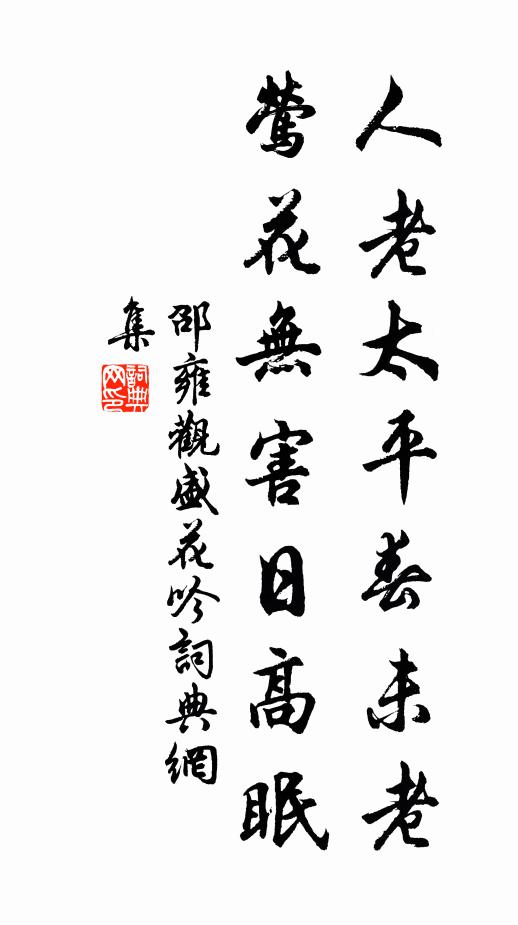 人老太平春未老
鶯花無害日高眠
邵雍觀盛花吟詞典網
集
詞典
网印